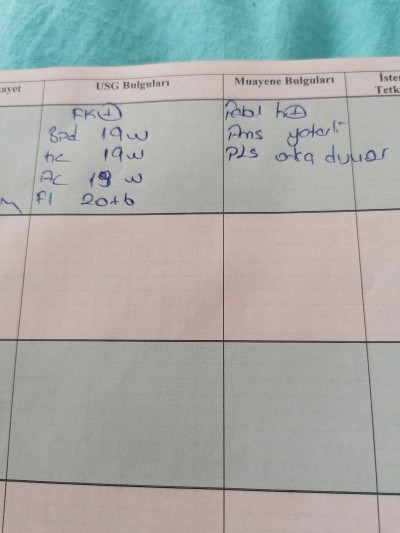 ayet
USG Bulguları
Muayene Bulguları
İste
Tetk
FK(+)
Bpd 19w
HC 19w
AC 19 w
Fl 20+6
h(+)
Ams yeterli
PLS arka duvar